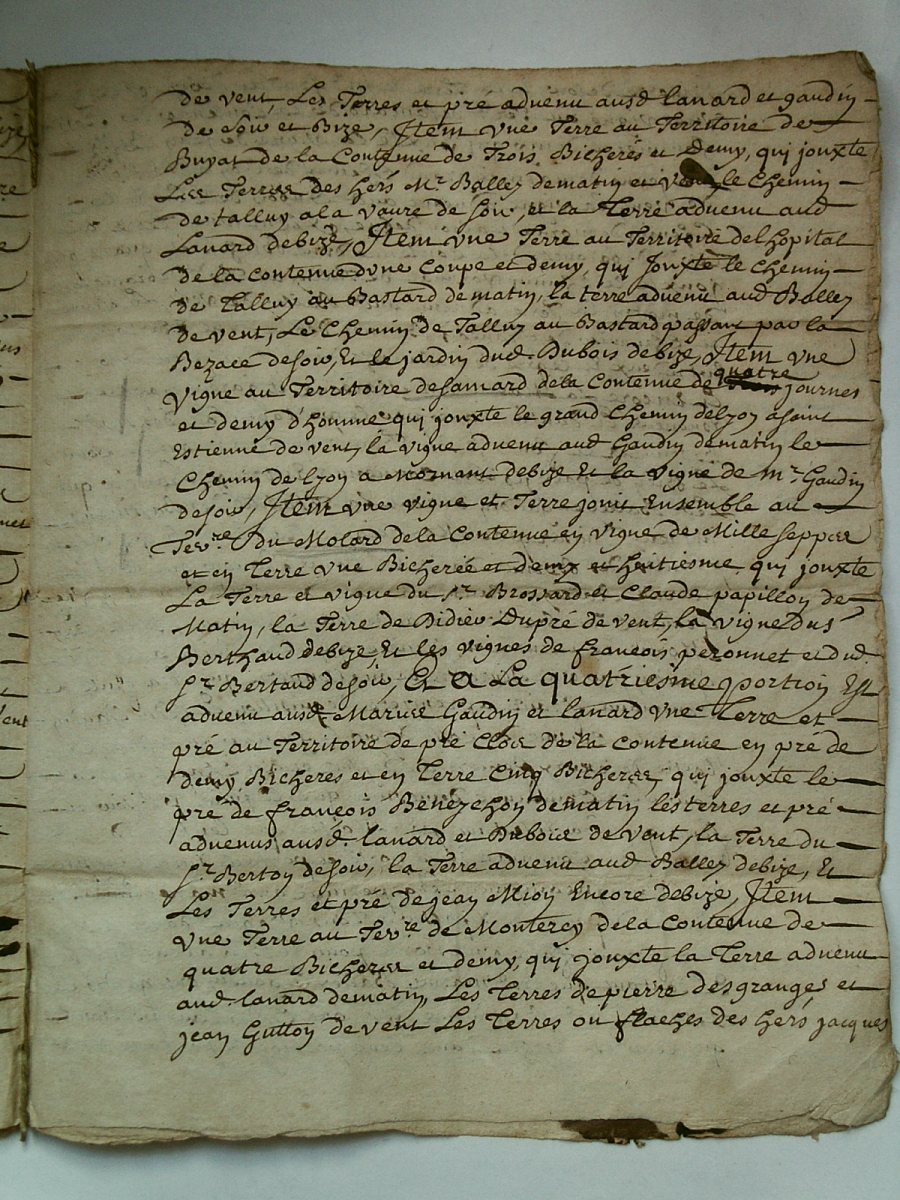 de vent, Les Terres et pré advenu ausd lanard et gaudin
de soir et Bize, Item vne Terre au Territoire de
Buyat de la Contenue de Trois Bicherés et Demy, qui jouxte
Les Terres des hers Mr. Balley dematin et vent, le Chemin
de talluy a la vaure de soir, et la Terre advenu aud
Lanard debize, Item vne Terre au Territoire delhopital
de la contenue dvne Coupe et demy, qui Jouxte le Chemin
de Talluy au Bastard de matin, la terre advenu aud Balley
de vent, Le Chemin de Talluy au Bastard passant par la
Bezace desoir, Et le jardin dud. Dubois debize, Item vne
vigne au Territoire desamard dela Contenue de quatre journes
et demy d'homme qui jouxte le grand Chemin delyon asaint
Estienne de vent, la vigne advenu aud Gaudin dematin le
Chemin de lyon a Mornant debize Et la vigne de mr. Gaudin
desoir, Item vne vigne et Terre joint Ensemble au
Terre. Du Molard dela Contenue en vigne de Mille seppes
et en Terre vne Bicherée et demy et huitiesme, qui jouxte
La Terre et vigne du sr. Brossard et Claude papillon de
Matin, la Terre de Didier Dupré de vent, la vigne du s
Berthaud debize, Et les vignes de françois peronnet et dud.
sr. Bertaud desoir, Et a La quatriesme portion Est
advenu ausd Maries Gaudin et lanard vne Terre et
pré au Territoire de pré Clos de la contenue en pré de
demy Bicheres et en Terre Cinq Bicheres, qui jouxte le
pré de françois Benezehon dematin les terres et pré
advenus ausd. lanard et Dubois de vent, la Terre du
sr. Berton desoir, la Terre advenu aud Balley debize, Et
Les Terres et pré de jean Mion Encore debize, Item
vne Terre au Terre. de Monterey dela Contenue de
quatre Bicheres et demy, qui jouxte la Terre advenu
aud. lanard dematin, Les Terres de pierre desgranges et
jean Gutton de vent Les Terres ou flaches des hers jacques